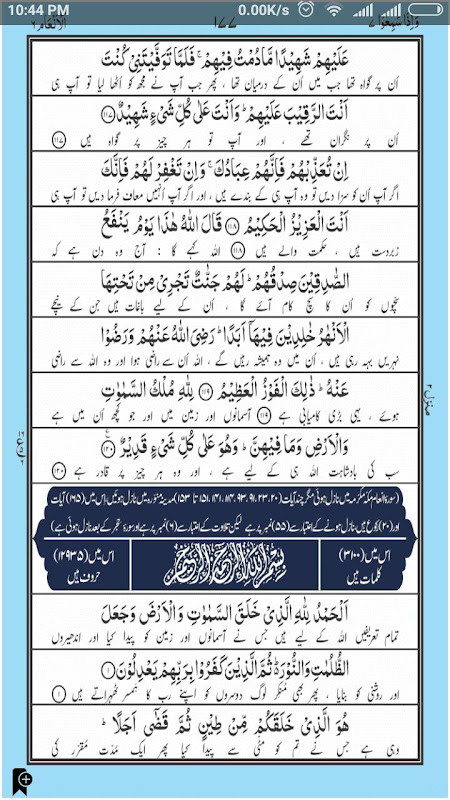 10:44 PM 0.00K/s
وَاِذَا سَمِعُوْا ٧ ١٧٧ الْاَنْعَام ٦
عَلَيْهِمْ شَهِيْدًا مَّا دُمْتُ فِيْهِمْ ۚ فَلَمَّا تَوَفَّيْتَنِيْ كُنْتَ
اُن پر گواہ تھا جب میں اُن کے درمیان تھا ، پھر جب آپ نے مجھ کو اُٹھا لیا تو آپ ہی
اَنْتَ الرَّقِيْبَ عَلَيْهِمْ ؕ وَاَنْتَ عَلٰى كُلِّ شَيْءٍ شَهِيْدٌ ﴿١١٧﴾
اُن پر نگران تھے ، اور آپ تو ہر چیز پر گواہ ہیں ﴿١١٧﴾
اِنْ تُعَذِّبْهُمْ فَاِنَّهُمْ عِبَادُكَ ۚ وَاِنْ تَغْفِرْ لَهُمْ فَاِنَّكَ
اگر آپ اُن کو سزا دیں تو وہ آپ ہی کے بندے ہیں ، اور اگر آپ اُنہیں معاف فرما دیں تو آپ ہی
اَنْتَ الْعَزِيْزُ الْحَكِيْمُ ﴿١١٨﴾ قَالَ اللّٰهُ هٰذَا يَوْمُ يَنْفَعُ
زبردست ہیں ، حکمت والے ہیں ﴿١١٨﴾ اللہ کہے گا : آج وہ دن ہے کہ
الصّٰدِقِيْنَ صِدْقُهُمْ ؕ لَهُمْ جَنّٰتٌ تَجْرِيْ مِنْ تَحْتِهَا
سچوں کو اُن کا سچ کام آئے گا ، اُن کے لیے باغات ہیں جن کے نیچے
الْاَنْهٰرُ خٰلِدِيْنَ فِيْهَاۤ اَبَدًا ؕ رَضِيَ اللّٰهُ عَنْهُمْ وَرَضُوْا
نہریں بہہ رہی ہیں ، اُن میں وہ ہمیشہ رہیں گے ، اللہ اُن سے راضی ہوا اور وہ اللہ سے راضی
عَنْهُ ؕ ذٰلِكَ الْفَوْزُ الْعَظِيْمُ ﴿١١٩﴾ لِلّٰهِ مُلْكُ السَّمٰوٰتِ
ہوئے ، یہی بڑی کامیابی ہے ﴿١١٩﴾ آسمانوں اور زمین میں اور جو کچھ اُن میں ہے
وَالْاَرْضِ وَمَا فِيْهِنَّ ؕ وَهُوَ عَلٰى كُلِّ شَيْءٍ قَدِيْرٌ ﴿١٢٠﴾
سب کی بادشاہت اللہ ہی کے لیے ہے ، اور وہ ہر چیز پر قادر ہے ﴿١٢٠﴾
منزل ٢
(سورۂ انعام مکہ مکرمہ میں نازل ہوئی مگر چند آیات ٢٠، ٢٣، ٩١، ٩٣، ١١٤، ١٤١، ١٥١ تا ١٥٣) مدینہ منورہ میں نازل ہوئیں اس میں (١٦٥) آیات
اور (٢٠) رکوع ہیں نازل ہونے کے اعتبار سے (٥٥) نمبر پر ہے لیکن تلاوت کے اعتبار سے (٦) نمبر پر ہے اور سورۂ حجر کے بعد نازل ہوئی ہے)
اس میں (٣١٠٠) کلمات ہیں
بِسْمِ اللّٰهِ الرَّحْمٰنِ الرَّحِيْمِ
اس میں (١٢٩٣٥) حروف ہیں
اَلْحَمْدُ لِلّٰهِ الَّذِيْ خَلَقَ السَّمٰوٰتِ وَالْاَرْضَ وَجَعَلَ
تمام تعریفیں اللہ کے لیے ہیں جس نے آسمانوں اور زمین کو پیدا کیا اور اندھیروں
الظُّلُمٰتِ وَالنُّوْرَ ؕ ثُمَّ الَّذِيْنَ كَفَرُوْا بِرَبِّهِمْ يَعْدِلُوْنَ ﴿١﴾
اور روشنی کو بنایا ، پھر بھی مُنکر لوگ دوسروں کو اپنے رب کا ہمسر ٹھہراتے ہیں ﴿١﴾
هُوَ الَّذِيْ خَلَقَكُمْ مِّنْ طِيْنٍ ثُمَّ قَضٰۤى اَجَلًا ؕ
وہی ہے جس نے تم کو مٹی سے پیدا کیا پھر ایک مُدّت مُقرّر کی